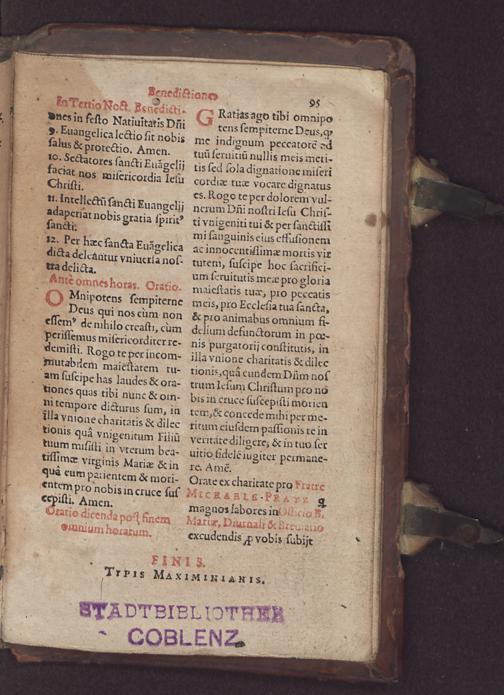 Benedictiones
95
In Tertio Noct. Benedicti-
ones in festo Natiuitatis Dñi
9. Euangelica lectio sit nobis
salus & protectio. Amen.
10. Sectatores sancti Euãgelij
faciat nos misericordia Iesu
Christi.
11. Intellectũ sancti Euangelij
adaperiat nobis gratia spirit⁹
sancti.
12. Per hæc sancta Euãgelica
dicta deleantur vniuersa nos-
tra delicta.
Ante omnes horas. Oratio.
OMnipotens sempiterne
Deus qui nos cùm non
essem⁹ de nihilo creasti, cùm
perissemus misericorditer re-
demisti. Rogo te per incom-
mutabilem maiestatem tu-
am suscipe has laudes & ora-
tiones quas tibi nunc & om-
ni tempore dicturus sum, in
illa vnione charitatis & dilec
tionis quâ vnigenitum Filiũ
tuum misisti in vterum bea-
tissimæ virginis Mariæ & in
quâ eum patientem & mori-
entem pro nobis in cruce sus
cepisti. Amen.
Oratio dicenda post finem
omnium horarum.
GRatias ago tibi omnipo
tens sempiterne Deus, ꝙ
me indignum peccatorẽ ad
tuũ seruitiũ nullis meis meri-
tis sed sola dignatione miseri
cordiæ tuæ vocare dignatus
es. Rogo te per dolorem vul-
nerum Dñi nostri Iesu Chris-
ti vnigeniti tui & per sanctissi
mi sanguinis eius effusionem
ac innocentissimæ mortis vir
tutem, suscipe hoc sacrifici-
um seruitutis meæ pro gloria
maiestatis tuæ, pro peccatis
meis, pro Ecclesia tua sancta,
& pro animabus omnium fi-
delium defunctorum in pœ-
nis purgatorij constitutis, in
illa vnione charitatis & dilec
tionis, quâ eundem Dñm nos
trum Iesum Christum pro no
bis in cruce suscepisti morien
tem, & concede mihi per me-
ritum eiusdem passionis te in
veritate diligere, & in tuo ser
uitio fideliẽ iugiter permane-
re. Amẽ.
Orate ex charitate pro Fratre
MICHAELE PRATZ q
magnos labores in Officio B.
Mariæ, Diurnali & Breuiario
excudendis ꝓ vobis subijt
FINIS.
TYPIS MAXIMINIANIS.
STADTBIBLIOTHEK
COBLENZ